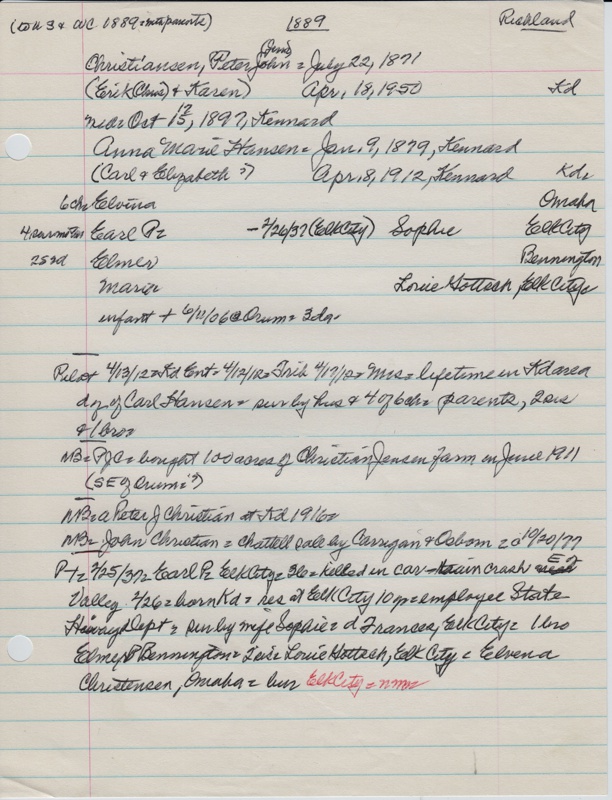 (to # 3 & WC 1889 = into parents) 1889 Richland
Christiansen, Peter John (Jens) = July 22, 1871
(Erik (Chris) & Karen) Apr. 18, 1950 Kd
md = Oct 12/15, 1897, Kennard
Anna Marie Hansen = Jan. 9, 1879, Kennard
(Carl & Elizabeth ?) Apr. 8, 1912, Kennard Kd =
6 ch = Elvina Omaha
4 sur mother Earl P = - 2/26/37 (Elk City) Sophie Elk City
2 s 2 d Elmer Bennington
Marie Louie Gottsch, Elk City =
infant + 6/11/06 @ Orum = 3 da =
Pilot 4/13/12 = Kd Ent = 4/12/12 = Trib 4/17/12 = Mrs = lifetime in Kd area
d of Carl Hansen = sur by hus & 4 of 6 ch = parents, 2 sis
& 1 bro =
NB = PJC = bought 100 acres of Christian Jensen farm in June 1911
(SE of Orum = ?)
NB = a Peter J Christian at Kd 1916 =
NB = John Christian = chattel sale by Carrigan & Osborn = @ 10/20/77
Pt = 2/25/37 = Earl P = Elk City = 36 = killed in car - train crash E of
Valley 2/26 = born Kd = res at Elk City 10 yr = employee State
Hiway Dept = sur by wife Sophie = d Frances, Elk City = 1 bro
Elmer P Bennington = 2 sis = Louie Gottsch, Elk City = Elvena
Christensen, Omaha = bur Elk City = nmn =